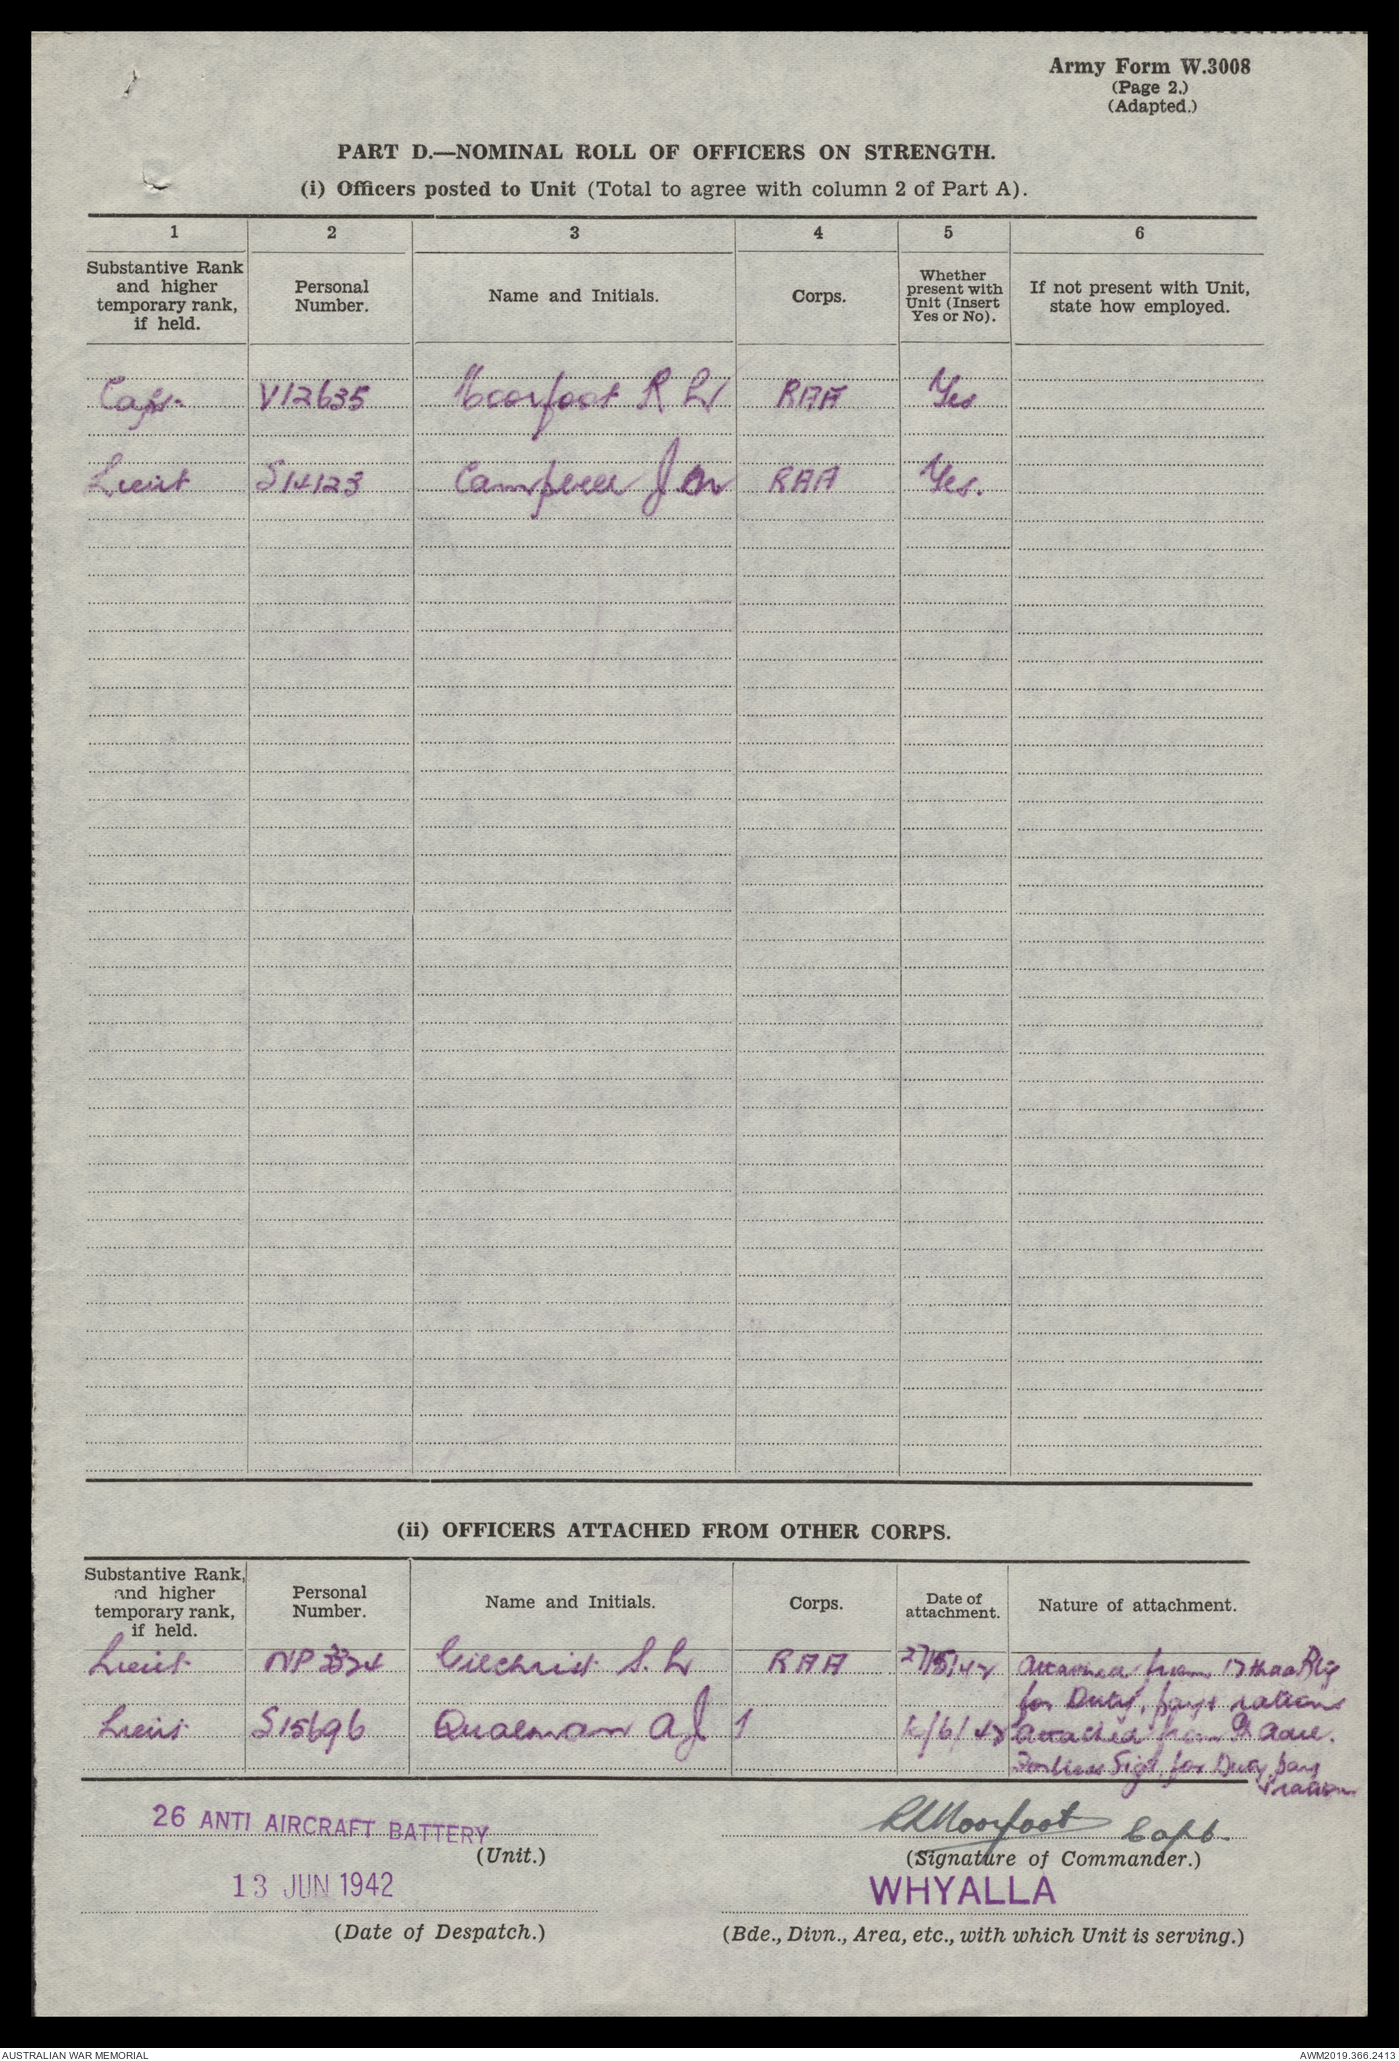 Army Form W.3008
(Page 2.)
(Adapted.)
PART D.—NOMINAL ROLL OF OFFICERS ON STRENGTH.
(i) Officers posted to Unit (Total to agree with column 2 of Part A).
1 2 3 4 5 6
Substantive Rank and higher temporary rank, if held.
Personal Number.
Name and Initials.
Corps.
Whether present with Unit (Insert Yes or No).
If not present with Unit, state how employed.
Capt. V12635 Moorfoot R L RAA Yes
Lieut S14123 Campbell J RAA Yes.
(ii) OFFICERS ATTACHED FROM OTHER CORPS.
Substantive Rank, and higher temporary rank, if held.
Personal Number.
Name and Initials.
Corps.
Date of attachment.
Nature of attachment.
Lieut NP Gilchrist S. L RAA 27/5/42 attached from
for Duty, pay & rations
Lieut S15696 Qualmann A J /6/42 attached from
Sigs, for Duty, pay
& rations
26 ANTI AIRCRAFT BATTERY
(Unit.)
RLMoorfoot Capt.
(Signature of Commander.)
13 JUN 1942
(Date of Despatch.)
WHYALLA
(Bde., Divn., Area, etc., with which Unit is serving.)
AUSTRALIAN WAR MEMORIAL
AWM2019.366.2413